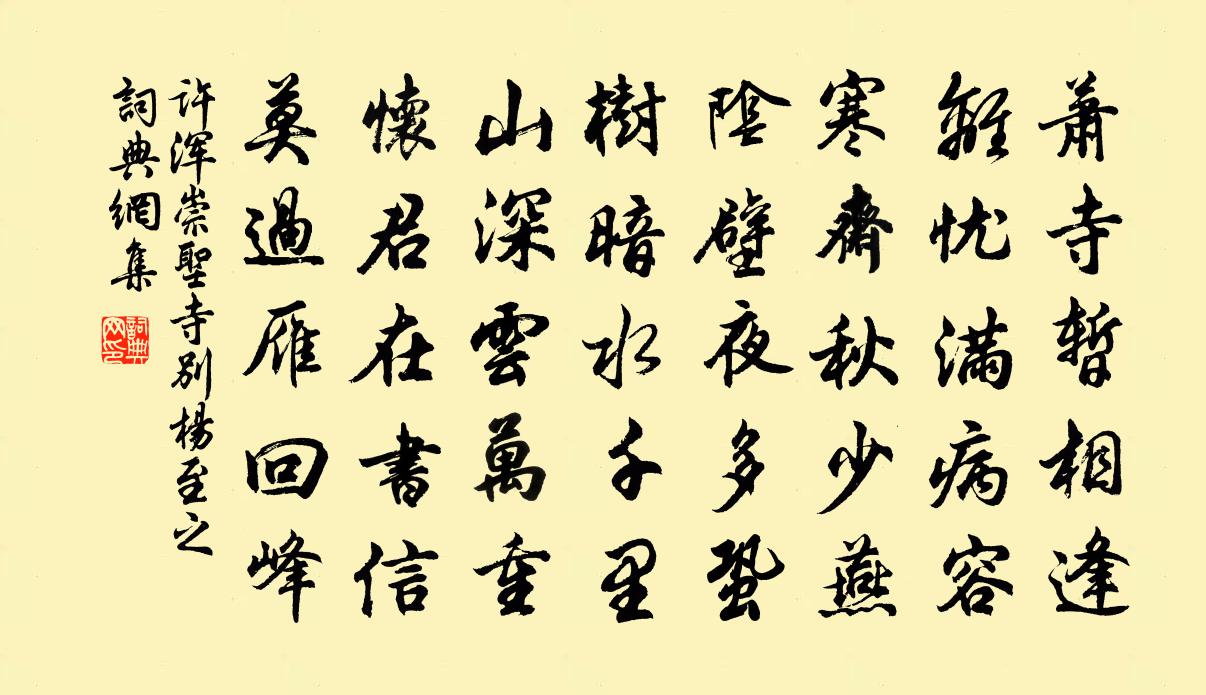 蕭寺暫相逢
離忧滿病容
寒齋秋少燕
陰壁夜多蛩
樹暗水千里
山深雲萬重
懷君在書信
莫過雁回峰
许渾崇聖寺别楊至之
詞典網集
詞典网印